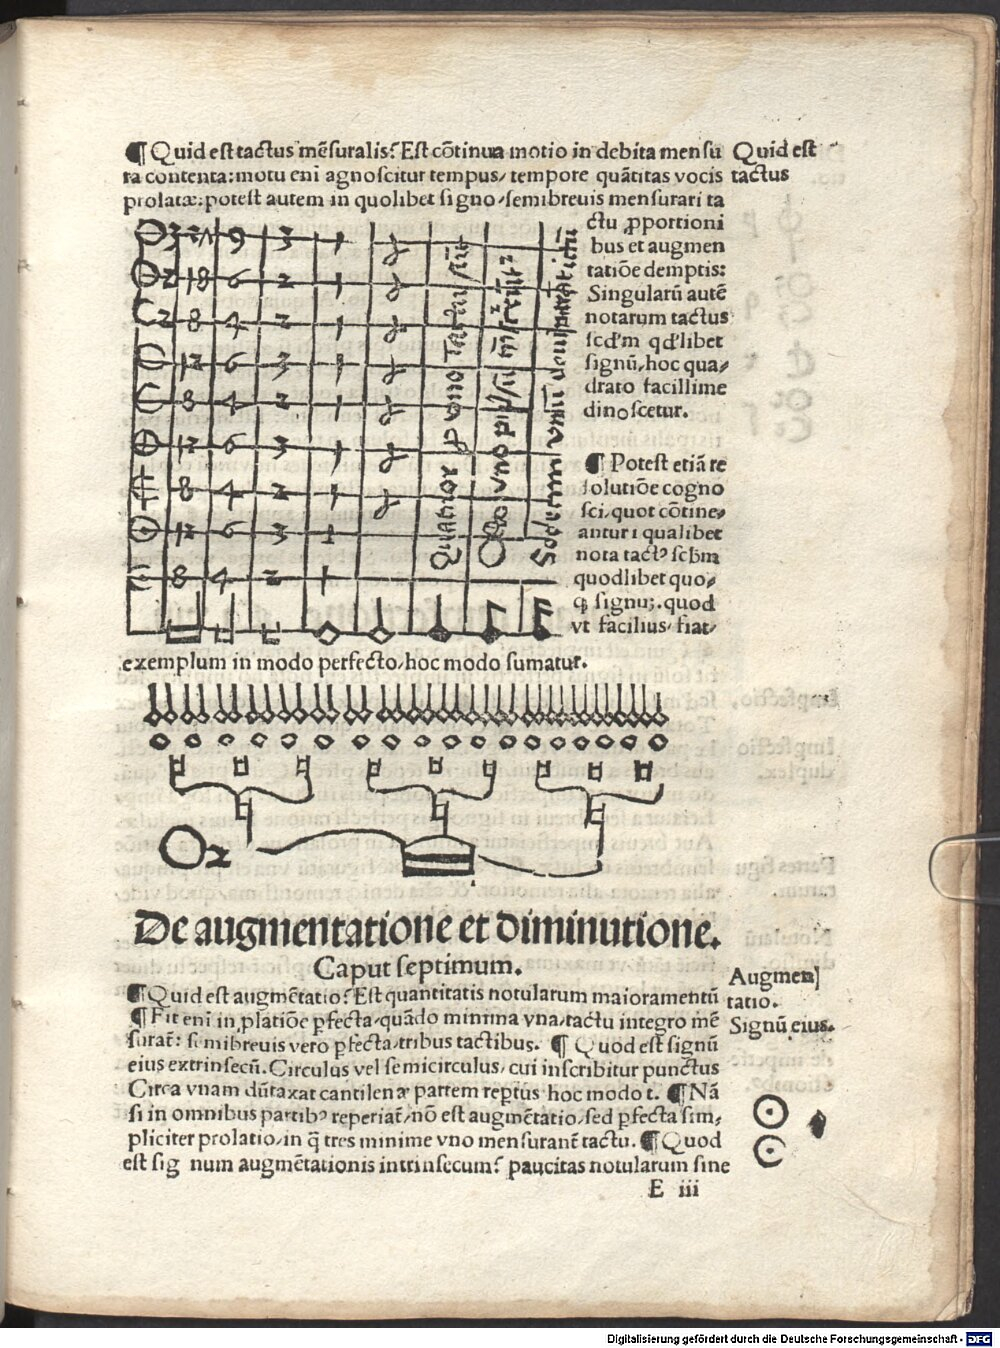 ¶ Quid est tactus mẽsuralis? Est cõtinua motio in debita mensu
ra contenta: motu eni agnoscitur tempus, tempore quãtitas vocis
prolatæ: potest autem in quolibet signo, semibreuis mensurari ta
Quid est
tactus
ctu ꝓportioni
bus et augmen
tatiõe demptis:
Singularũ autẽ
notarum tactus
scđm qđlibet
signũ, hoc qua⸗
drato facillime
dinoscetur.
¶ Potest etiã re
solutiõe cogno
sci, quot cõtine⸗
antur i qualibet
nota tactꝰ scđm
quodlibet quo⸗
signuʒ. quod
vt facilius, fiat,
O3 27 9 3 1
O2 18 6 2 1
C2 8 4 2 1
12 6 3 1
C 8 4 2 1
12 6 3 1
8 4 2 1
12 6 3 1
C 8 4 2 1
exemplum in modo perfecto, hoc modo sumatur.
O2
De augmentatione et diminutione.
Caput septimum.
¶ Quid est augmẽtatio? Est quantitatis notularum maioramentũ
¶ Fit eni in ꝓlatiõe ꝑfecta, quãdo minima vna, tactu integro mẽ
surat̃: semibreuis vero ꝑfecta, tribus tactibus. ¶ Quod est signũ
eius extrinsecũ. Circulus vel semicirculus, cui inscribitur punctus
Circa vnam dũtaxat cantilenæ partem reꝑtus hoc modo t. ¶ Nã
si in omnibus partibꝰ reperiat̃, nõ est augmẽtatio, sed ꝑfecta sim⸗
pliciter prolatio, in q̃ tres minime vno mensurant̃ tactu. ¶ Quod
est sig num augmẽtationis intrinsecum? paucitas notularum sine
Augmen
tatio.
Signũ eius.
E iii
Digitalisierung gefördert durch die Deutsche Forschungsgemeinschaft - DFG